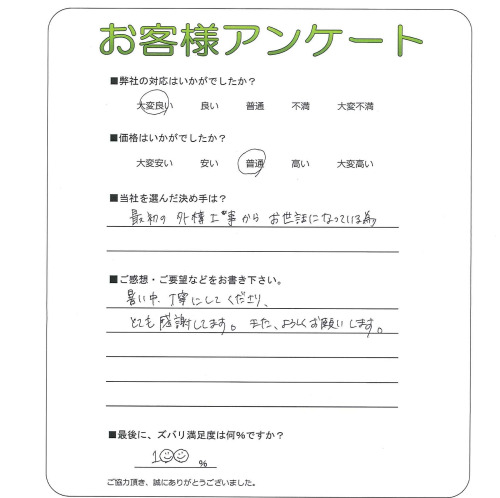 お客様アンケート
■弊社の対応はいかがでしたか？
大変良い 良い 普通 不満 大変不満
■価格はいかがでしたか？
大変安い 安い 普通 高い 大変高い
■当社を選んだ決め手は？
最初の外構工事からお世話になっている為
■ご感想・ご要望などをお書き下さい。
暑い中、丁寧にしてくださり、
とても感謝してます。また、よろしくお願いします。
■最後に、ズバリ満足度は何％ですか？
100 %
ご協力頂き、誠にありがとうございました。